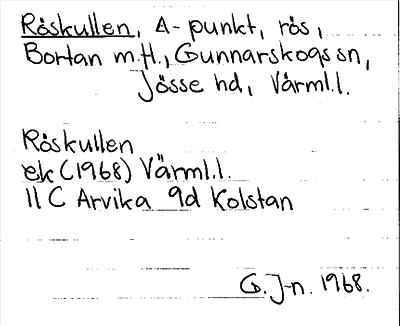 Röskullen, Δ-punkt, rös,
Bortan m.fl., Gunnarskogs sn,
Jösse hd, Värml.l.
Röskullen
ek (1968) Värml.l.
11 C Arvika 9d Kolstan
G. J-n. 1968.